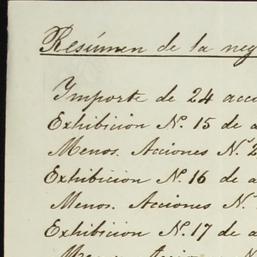 Resúmen de la neg
Importe de 24 acc
Exhibicion N.º 15 de a
Menos. Acciones N. 2
Exhibicion N.º 16 de a
Menos. Acciones N.
Exhibicion N.º 17 de a